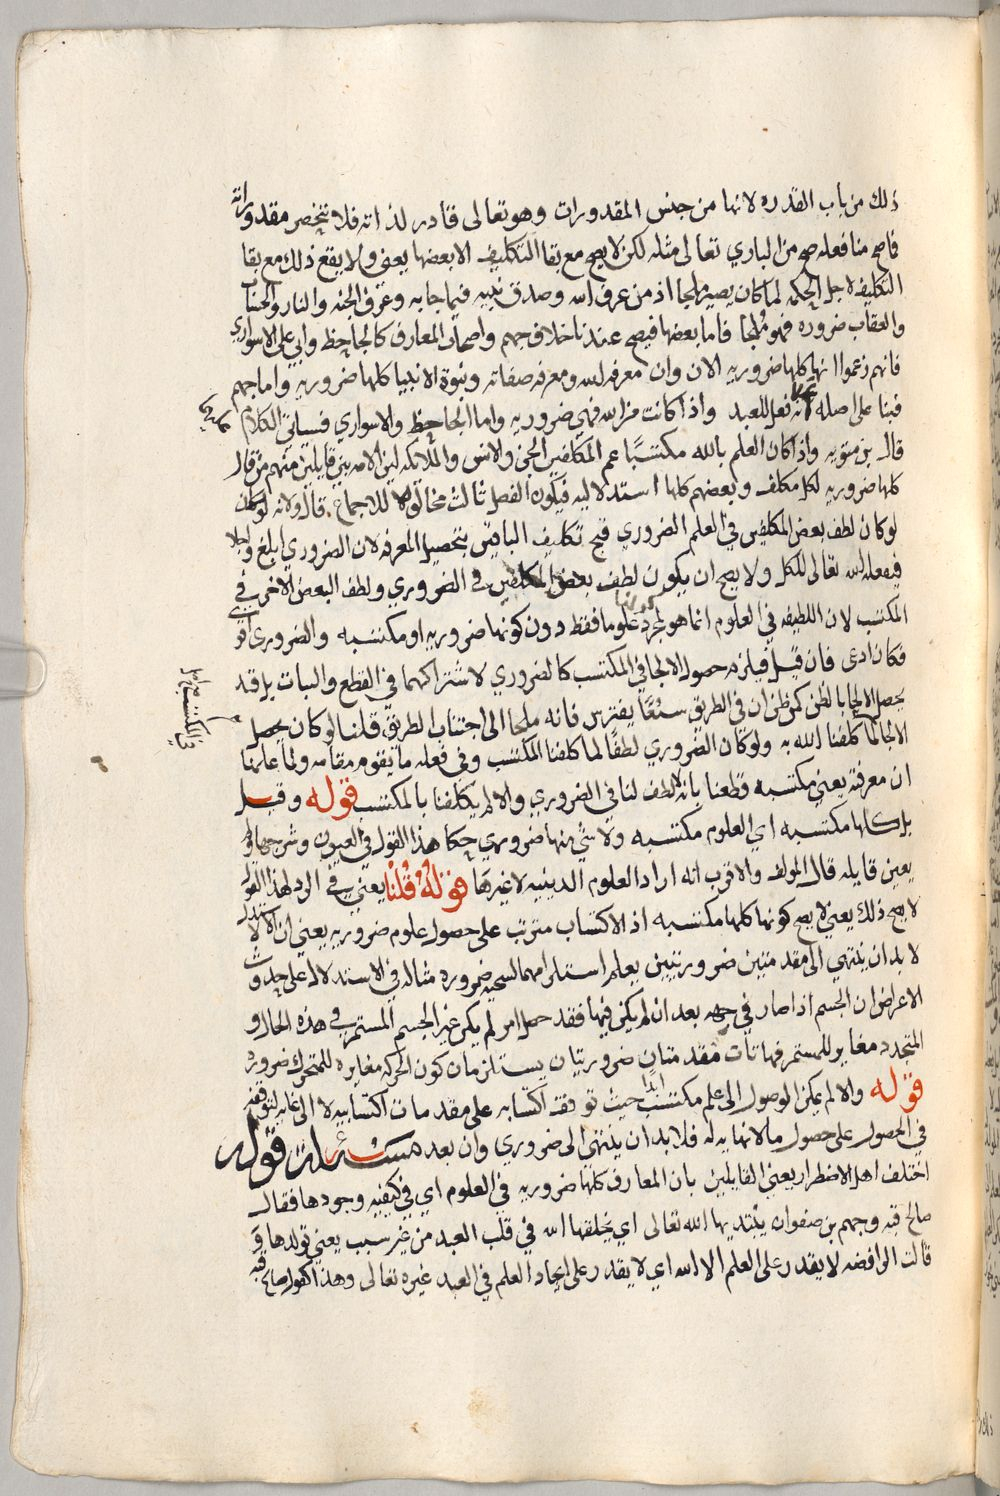 ذلك من باب القدره لانها من جنس المقدورات وهو تعالى قادر لذاته فلا تنحصر مقدوراته
فما صح منا فعله صح من الباري تعالى مثله لكن لا يصح مع بقا التكليف الا بعضها يعني ولا يقع ذلك مع بقا
التكليف لاجل الحكمه لما كان يصير ملجا اذ من عرف الله وصدق نبيه فيما جا به وعرف الجنه والنار والحساب
والعقاب ضروره فهو مُلجا فاما بعضها فيصح عندنا خلاف جهم واصحاب المعارف كالجاحظ وابي علي الاسواري
فانهم زعموا انها كلها ضروريه الان وان معرفه الله ومعرفه صفاته ونبوة الانبيا كلها ضروريه واما جهم
فبنا على اصله انه لا فعل للعبد واذا كانت من الله فهي ضروريه واما الجاحظ والاسواري فسياتي الكلام
قال بن متويه واذا كان العلم بالله مكتسبًا عم المكلفين الجن والانس والملائكه لان الامه بين قايلين منهم من قال
كلها ضروريه لكل مكلف وبعضهم كلها استدلاليه فيكون الفصل ثالث مخالفا للاجماع . قال ولانه لو كان
لو كان لطف بعض المكلفين في العلم الضروري قبح تكليف الباقين بتحصيل المعرفه لان الضروري ابلغ واجلا
فيفعله الله تعالى للكل ولا يصح ان يكون لطف بعض المكلفين في الضروري ولطف البعض الاخر في
المكتسب لان اللطيفه في العلوم انما هو لمجرد كونها علوما فقط دون كونها ضروريه او مكتسبه والضروري اقوى
فكان ادعى فان قيل فيلزم حصول الالجا في المكتسب كالضروري لاشتراكهما في القطع والبات بل قد
يحصل الالجا بالظن كمن ظن ان في الطريق سبُعًا يفترس فانه ملجا الى اجتناب الطريق قلنا لو كان يحصل
في المكتسب
الالجا لما كلفنا الله به ولو كان الضروري لطفًا لما كلفنا المكتسب وفي فعله ما يقوم مقامه ولما علمنا
ان معرفته يعني مكتسبه قطعنا بانه لا لطف لنا في الضروري والا لم يكلفنا بالمكتسب قوله وقيل
بل كلها مكتسبه اي العلوم مكتسبه ولا شي منها ضروري حكا هذا القول في العيون وشرحها ولم
يعين قايله قال المولف والاقرب انه اراد العلوم الدينيه لا غيرها قوله قُلنا يعني في الرد لهذا القول
لا يصح ذلك يعني لا يصح كونها كلها مكتسبه اذ الاكتساب مترتب على حصول علوم ضروريه يعني ان الاستدلال
لا بد ان ينتهي الى مقدمتين ضروريتين يعلم استلزامهما لنتيجه ضروره مثاله في الاستدلال على حدوث
الاعراض ان الجسم اذا صار في جهه بعد ان لم يكن فيها فقد حصل امر لم يكن غير الجسم المستمر في هذه الحال و
المتجدد مغاير للمستمر فهاتان مقدمتان ضروريتان يستلزمان كون الحركه مغايره للمتحرك ضروره
قوله والا لم يمكن الوصول الى علم مكتسب ابدا حيث توقف اكتسابه على مقدمات اكتسابيه لا الى غايه لتوقفه
في الحصول على حصول ما لا نهايه له فلا بد ان ينتهي الى ضروري وان بعد مسئلة قوله
اختلف اهل الاضطرار يعني القايلين بان المعارف كلها ضروريه في العلوم اي في كيفيه وجودها فقال
صالح قبه وجهم بن صفوان يبتديها الله تعالى اي يخلقها الله في قلب العبد من غير سبب يعني تولدها و
قالت الرافضه لا يقدر على العلم الا الله اي لا يقدر على ايجاد العلم في العبد غيره تعالى وهذا كقول صالح قبه